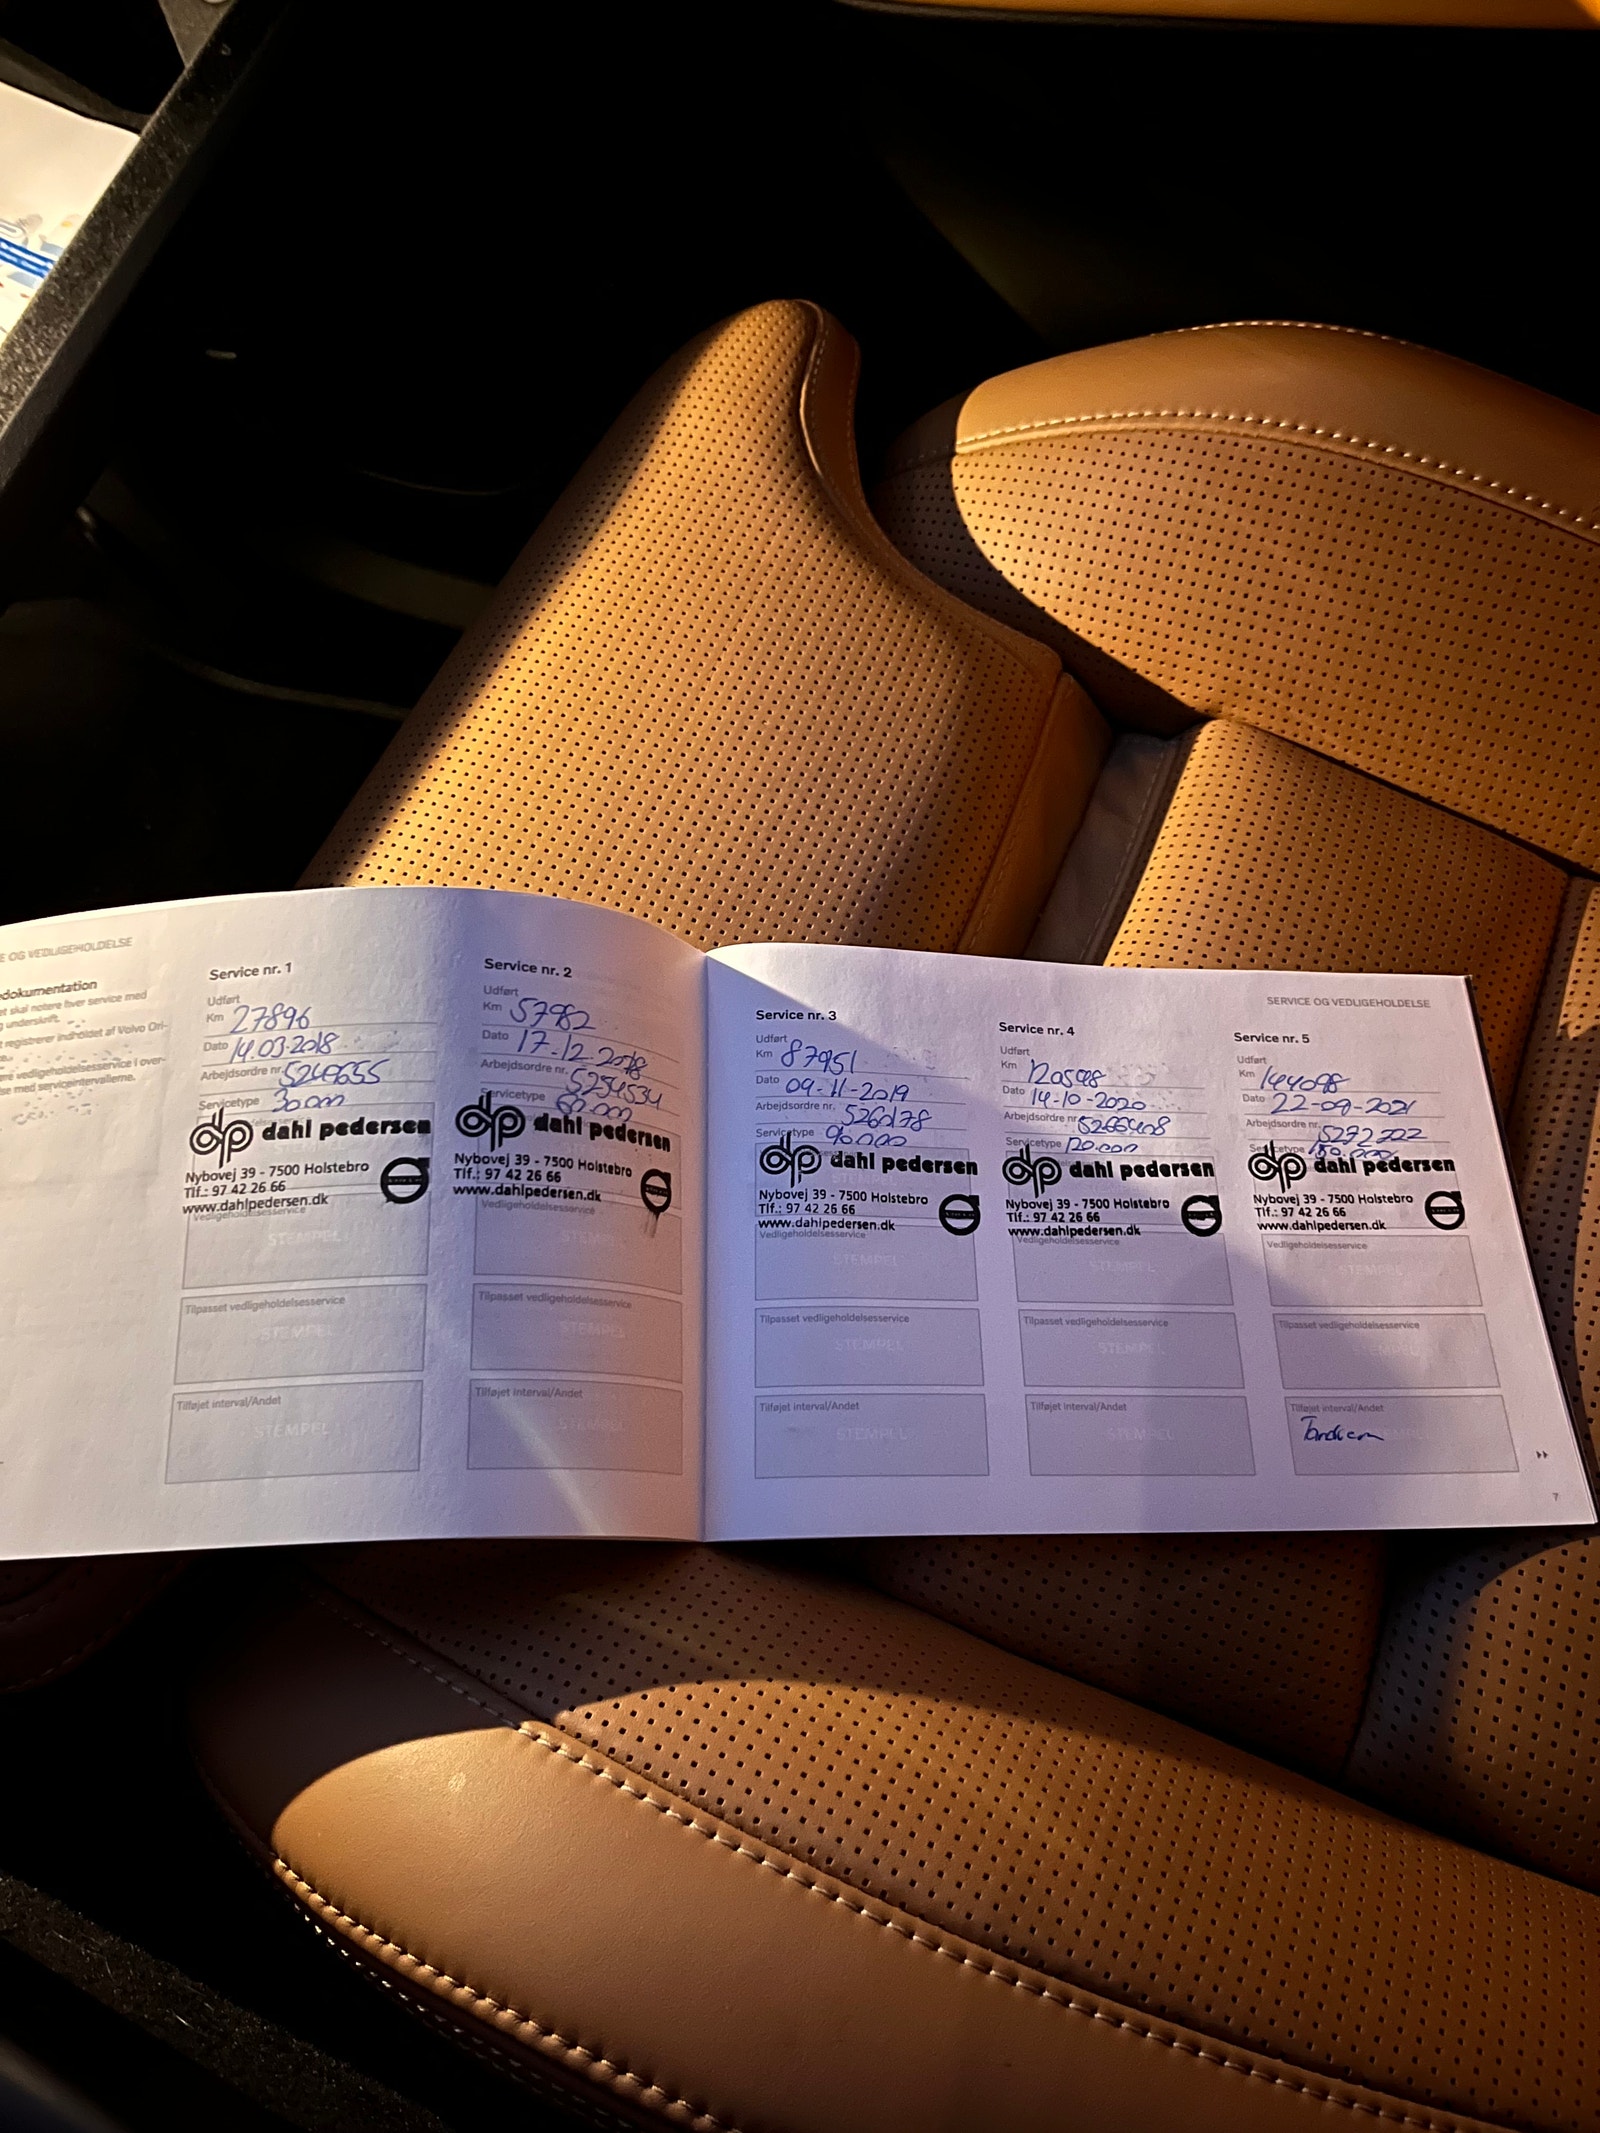 E OG VEDLIGEHOLDELSE
dokumentation
et skal notere hver service med
g underskrift.
t registrerer indholdet af Volvo Ori-
ere vedligeholdelsesservice i over-
se med serviceintervallerne.
Service nr. 1
Udført
Km 27896
Dato 14.03.2018
Arbejdsordre nr. 5249655
Servicetype 30.000
dp dahl pedersen
Nybovej 39 - 7500 Holstebro
Tlf.: 97 42 26 66
www.dahlpedersen.dk
Vedligeholdelsesservice
STEMPEL
Tilpasset vedligeholdelsesservice
STEMPEL
Tilføjet interval/Andet
STEMPEL
Service nr. 2
Udført
Km 57982
Dato 17.12.2018
Arbejdsordre nr. 5254534
Servicetype 60.000
dp dahl pedersen
Nybovej 39 - 7500 Holstebro
Tlf.: 97 42 26 66
www.dahlpedersen.dk
Vedligeholdelsesservice
STEMPEL
Tilpasset vedligeholdelsesservice
STEMPEL
Tilføjet interval/Andet
SERVICE OG VEDLIGEHOLDELSE
Service nr. 3
Udført
Km 87951
Dato 09-11-2019
Arbejdsordre nr. 5260178
Servicetype 90.000
dp dahl pedersen
Nybovej 39 - 7500 Holstebro
Tlf.: 97 42 26 66
www.dahlpedersen.dk
Vedligeholdelsesservice
STEMPEL
Tilpasset vedligeholdelsesservice
STEMPEL
Tilføjet interval/Andet
STEMPEL
Service nr. 4
Udført
Km 120598
Dato 14-10-2020
Arbejdsordre nr. 5266408
Servicetype 120.000
dp dahl pedersen
Nybovej 39 - 7500 Holstebro
Tlf.: 97 42 26 66
www.dahlpedersen.dk
Vedligeholdelsesservice
STEMPEL
Tilpasset vedligeholdelsesservice
STEMPEL
Tilføjet interval/Andet
STEMPEL
Service nr. 5
Udført
Km 144098
Dato 22-09-2021
Arbejdsordre nr. 5272202
Servicetype
dp dahl pedersen
Nybovej 39 - 7500 Holstebro
Tlf.: 97 42 26 66
www.dahlpedersen.dk
Vedligeholdelsesservice
STEMPEL
Tilpasset vedligeholdelsesservice
STEMPEL
Tilføjet interval/Andet
7